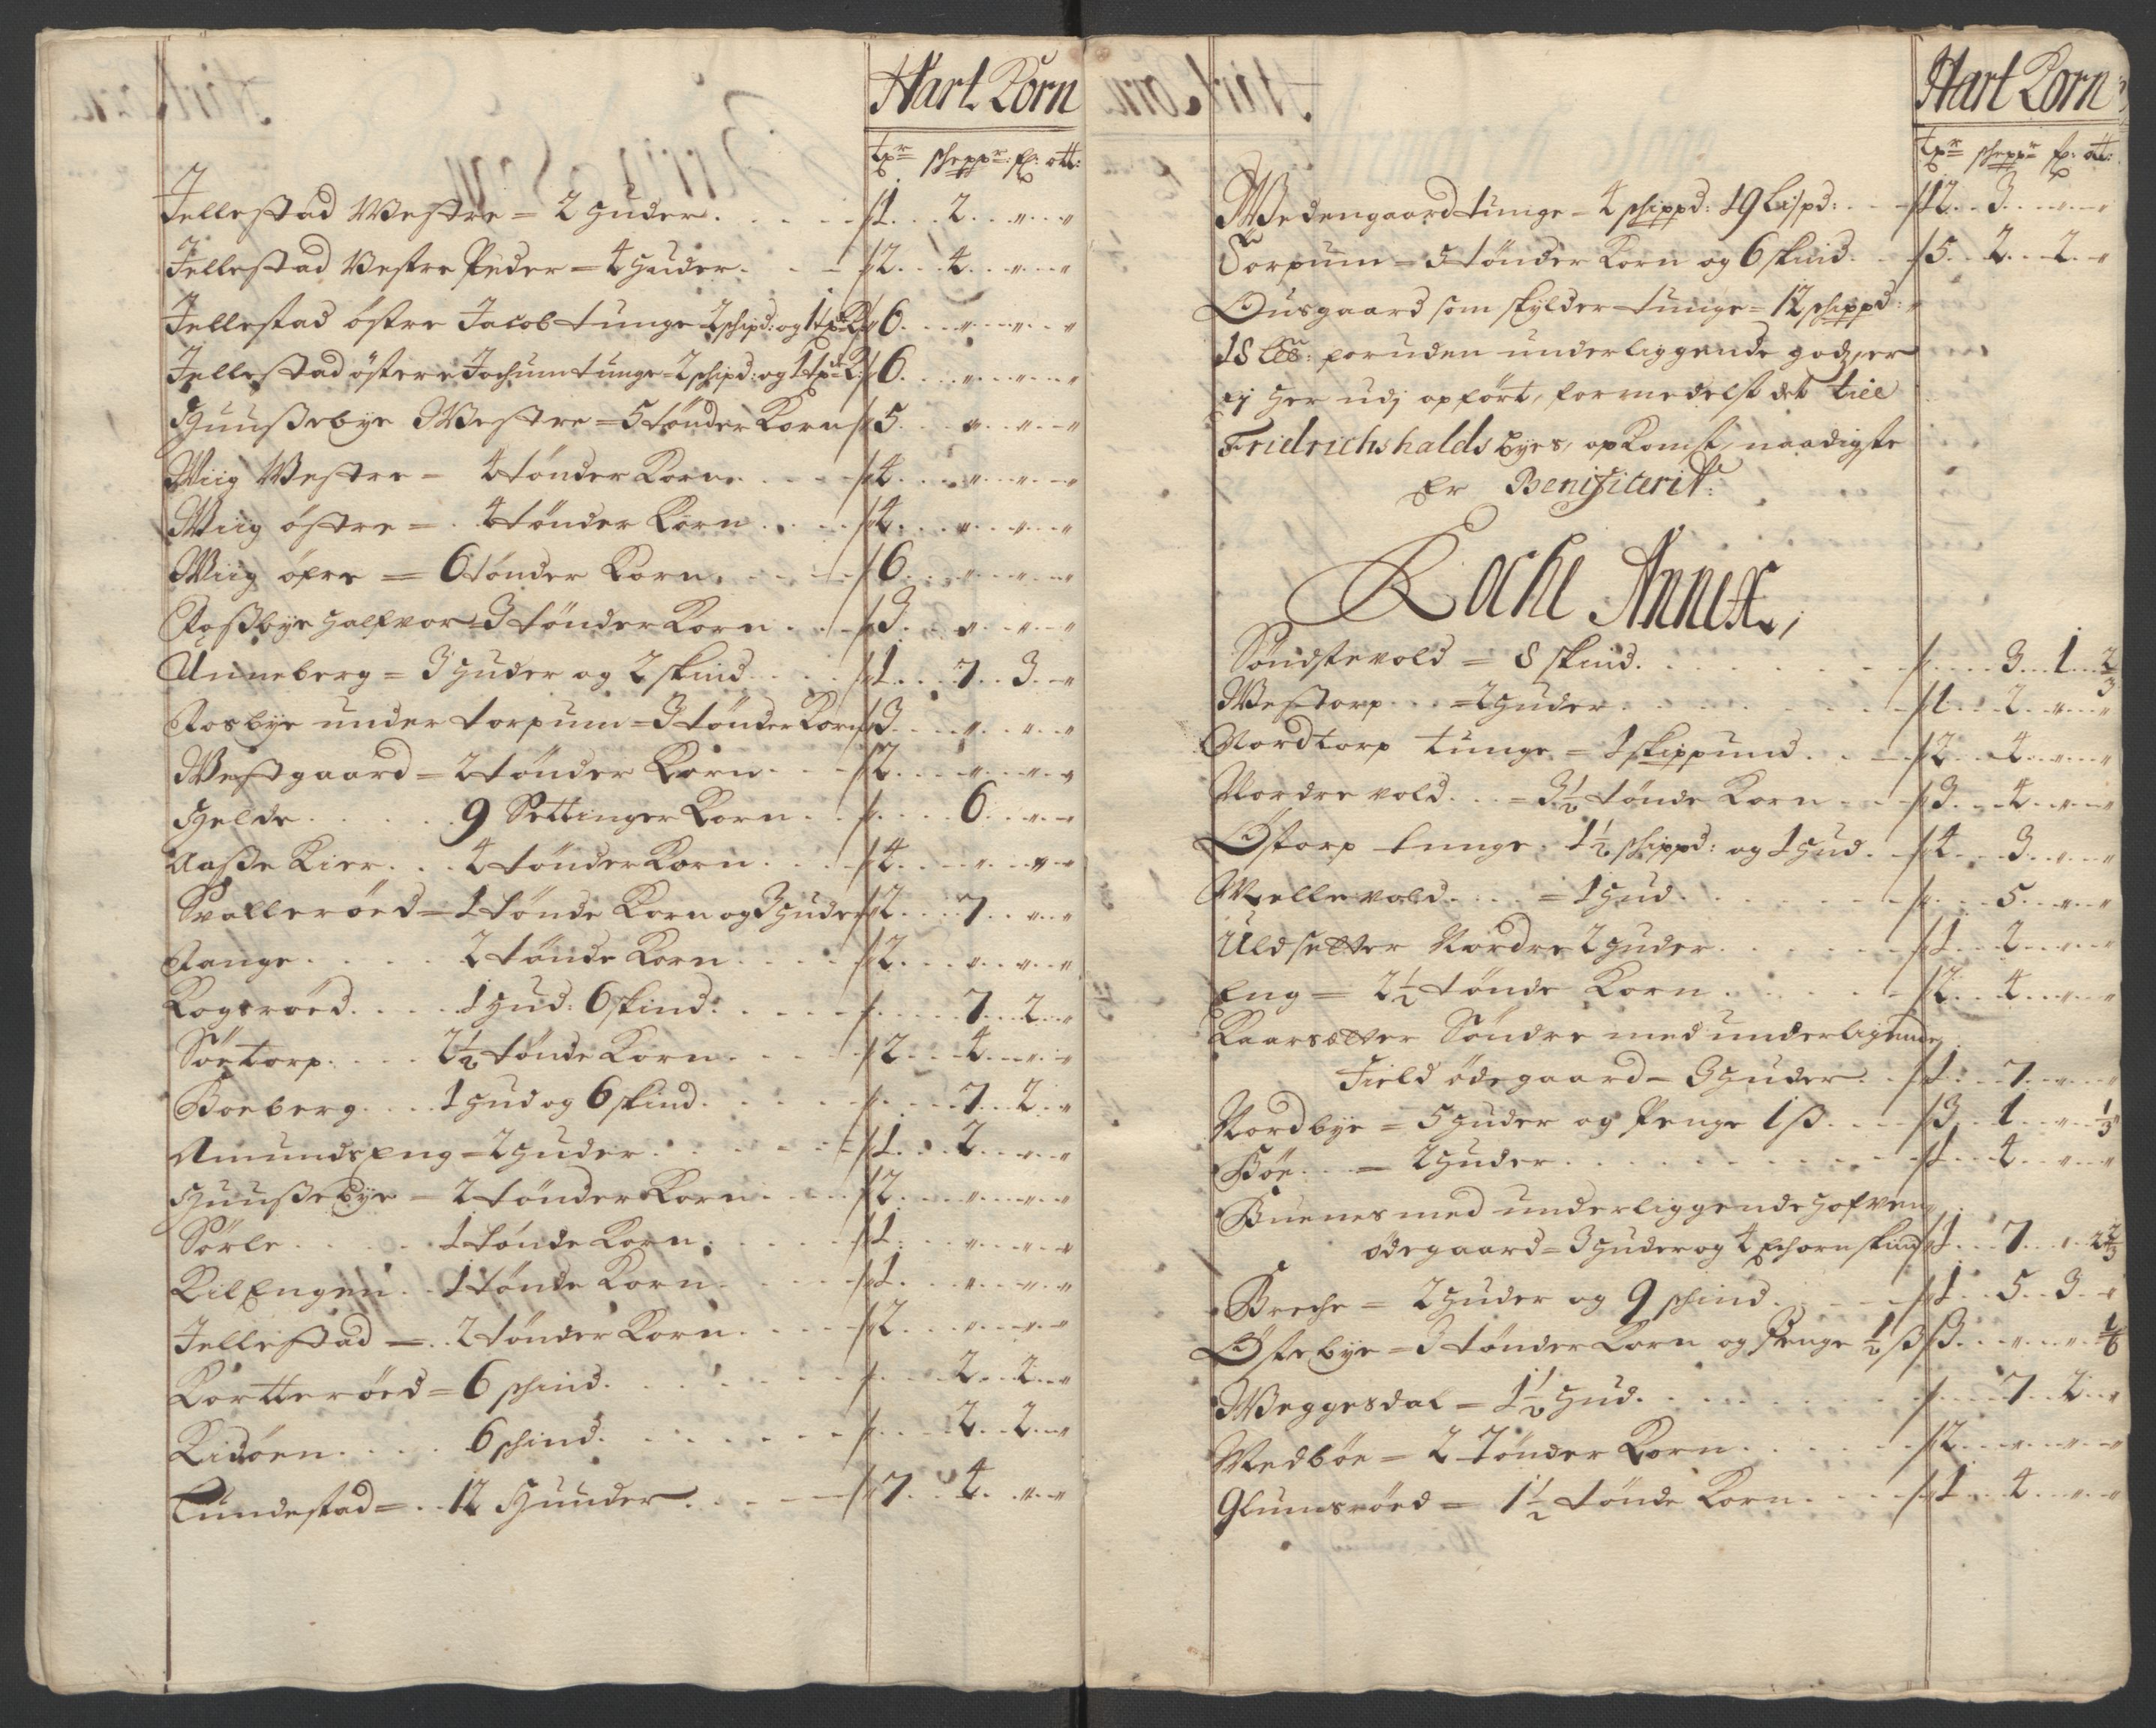 Hart Korn
tr schepr: fr: ott:
Jellestad Westre = 2 huder. 1. 2. " "
Jellestad Vestre Peder = 4 huder. 2. 4. " "
Jellestad östre Jacob tunge 2 schipd: og 1 tr K 6. " " "
Jellestad östere Jochum tunge = 2 schipd: og 1 tr K: 6. " " "
Huußebye Westre = 5 tönder Korn 5. " " "
Wiig Westre = 4 tönder Korn. 4. " " "
Wiig östre = 4 tönder Korn. 4. " " "
Wiig öfre = 6 tönder Korn. 6. " " "
Foßbye Halfvor = 3 tönder Korn. 3. " " "
Unneberg = 3 huder og 2 skind. 1. 7. 3. "
Fosbye under torpum = 3 tönder Korn 3. " " "
Westgaard = 2 tönder Korn. 2. " " "
Hjelde. 9 Settinger Korn. 6. " "
Aaße Kier. 4 tönder Korn. 4. " " "
Svalleröed = 1 tönde Korn og 3 huder 2. 7. " "
Tange. 2 tönde Korn. 2. " " "
Rogsröed. 1 hud: 6 skind: 7. 2. "
Söetorp. 2½ tönde Korn. 2. 4. " "
Boeberg. 1 hud og 6 skind. 7. 2. "
Amunds Eng = 2 huder. 1. 2. " "
Huußebye = 2 tönder Korn. 2. " " "
Sörle. 1 tönde Korn. 1. " " "
Kil Engen. 1 tönde Korn. 1. " " "
Jellestad = 2 tönder Korn. 2. " " "
Kortteröed = 6 schind. 2. 2. "
Kidöen. 6 schind. 2. 2. "
Tundestad = 12 Huuder. 7. 4. " "
Hart Korn
tr schepr fr: ott:
Wedengaard tunge = 4 schippd: 19 Lispd: 12. 3. " "
Torpum = 5 tönder Korn og 6 skind. 5. 2. 2. "
Ousgaard som skylder tunge = 12 schippd:
18 foruden underliggende godz, er
ej her udj opfört, formedelst det till
Fridrichshalds byes, opkomst, naadigste
Er Benifiterit:
Rocke Annex,
Söndstevold = 8 skind. 3. 1. 2/3
Westorp. = 2 huder. 1. 2. " "
Nordtorp tunge = 1 skippund. 2. 4. " "
Nordre vold. = 3½ tönde Korn. 3. 4. " "
Östorp tunge. 1½ schippd: og 1 hud. 4. 3. " "
Mellevold. = 1 hud. 5. " "
Uldsætter Nordre 2 huder. 1. 2. " "
Eng = 2½ tönde Korn. 2. 4. " "
Kaarsætter Söndre med underligende
Field ödegaard = 3 huder. 1. 7. " "
Nordbye = 5 huder og Penge 1 ß. 3. 1. " 1/3
Böe. = 2 huder. 1. 4. " "
Buenes med underliggende Hofven
ödegaard = 3 huder og 4 Echorn skind 1. 7. " 2 2/3
Breche = 2 huder og 9 schind. 1. 5. 3. "
Östebye = 3 tönder Korn og Penge ½ ß 3. " " 1/6
Weggesdal = 1½ hud. 7. 2. "
Wedböe = 2 Tönder Korn. 2. " " "
Glumsröed = 1½ tönde Korn. 1. 4. " "